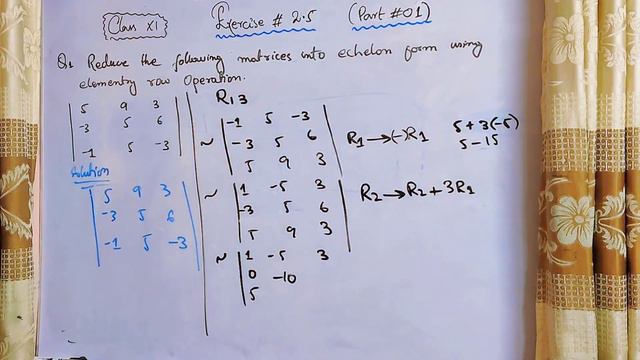 Class XI Exercise # 2.5 (Part #01)
Q1 Reduce the following matrices into echelon form using
elementry row Operation.
5 9 3
-3 5 6
-1 5 -3
Solution
5 9 3
-3 5 6
-1 5 -3
R13
~ -1 5 -3
-3 5 6
5 9 3
R1→(-)R1
5+3(-5)
5-15
~ 1 -5 3
-3 5 6
5 9 3
R2→R2+3R1
~ 1 -5 3
0 -10
5